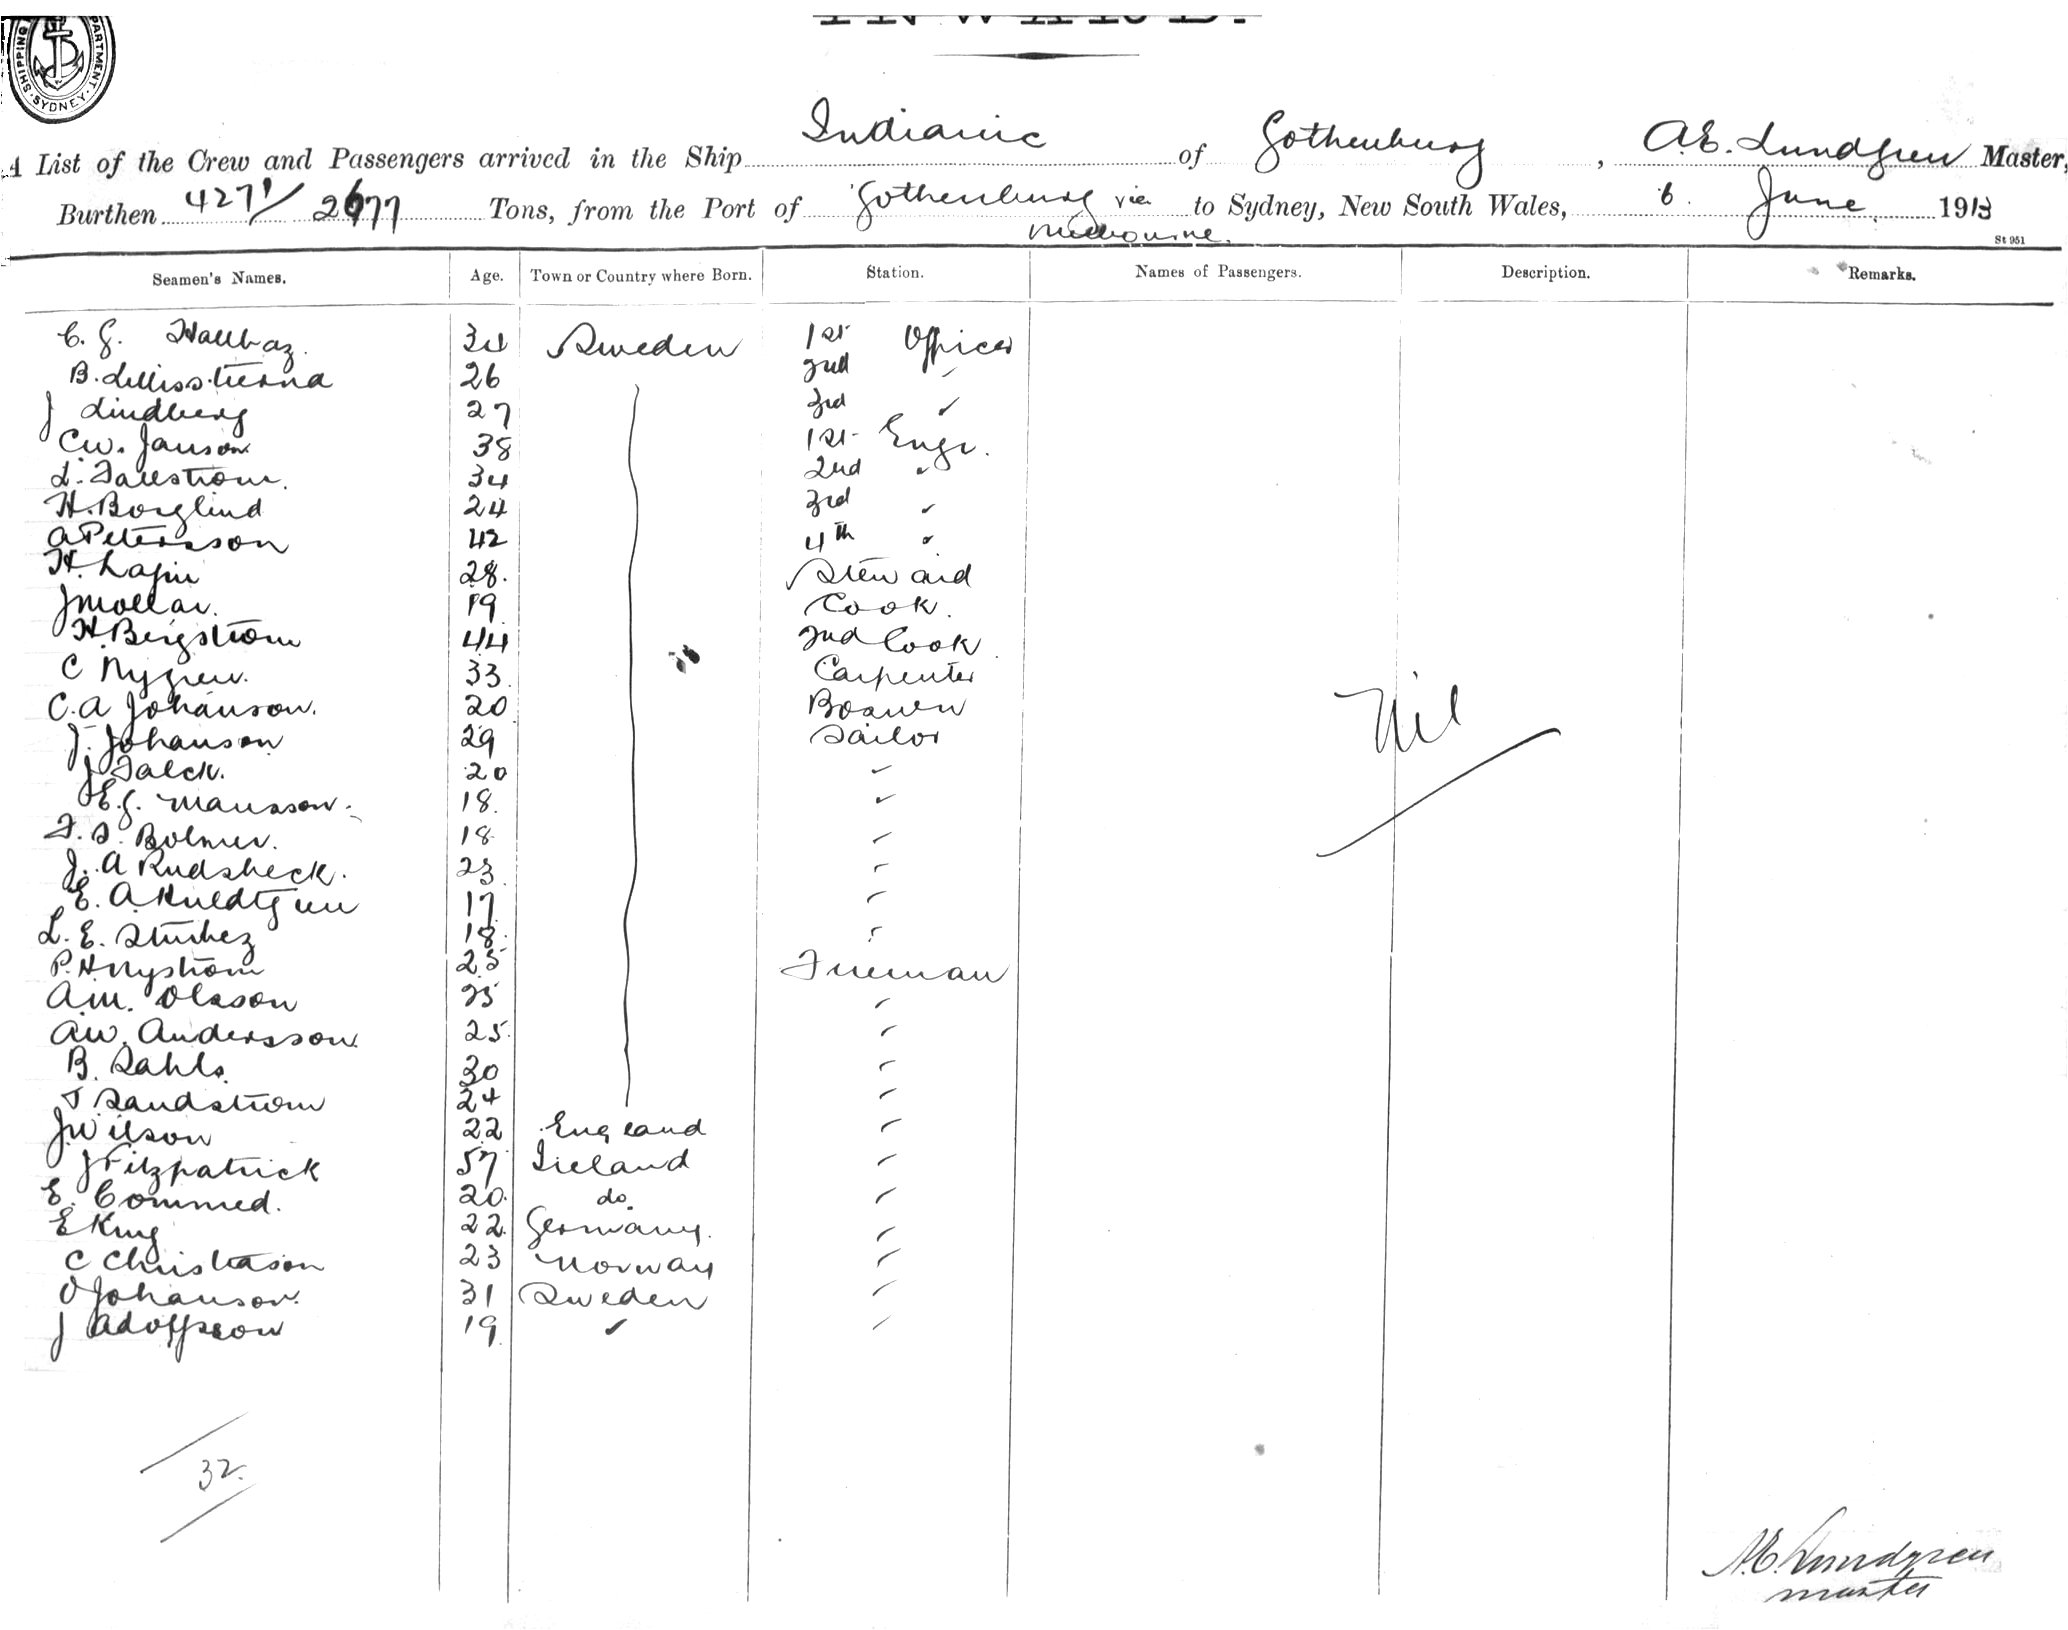 SHIPPING DEPARTMENT SYDNEY
INWARD.
A List of the Crew and Passengers arrived in the Ship Indianic of Gothenburg, A.E. Lundgren Master,
Burthen 4271/2677 Tons, from the Port of Gothenburg via Melbourne to Sydney, New South Wales, 6. June 1913
St 951
Seamen's Names. Age. Town or Country where Born. Station. Names of Passengers. Description. Remarks.
C. G. 34 Sweden 1st Officer
B. 26 2nd
J Lindberg 27 3rd "
C.W. Janson 38 1st Engr.
L. Fallstrom. 34 2nd "
H. Borglind 24 3rd "
A Petersson 42 4th "
H. 28. Steward
J Mollar. 19 Cook.
H. Bergstrom 44 2nd Cook
C Nygren. 33. Carpenter
C. A Johanson. 20 Boswen
J. Johanson 29 Sailor
J Falck. 20 "
E. G. Mansson. 18. "
F. S. Bolmer. 18 "
J. A Rudsheck. 23. "
E. A. 17 "
L. E. "
P. H. Nystrom 25 Fireman
A.M. Olsson 25 "
A.W. Andersson. 25. "
B. Dahls. 30 "
T Sandstrom 24 "
J. Wilson 22 England "
J Fitzpatrick 57 Ireland "
E. Commed. 20. do. "
E King 22. Germany. "
C Christiason 23 Norway "
O Johanson. 31 Sweden "
J Adolfsson 19. " "
Nil
32.
A.E. Lundgren
master